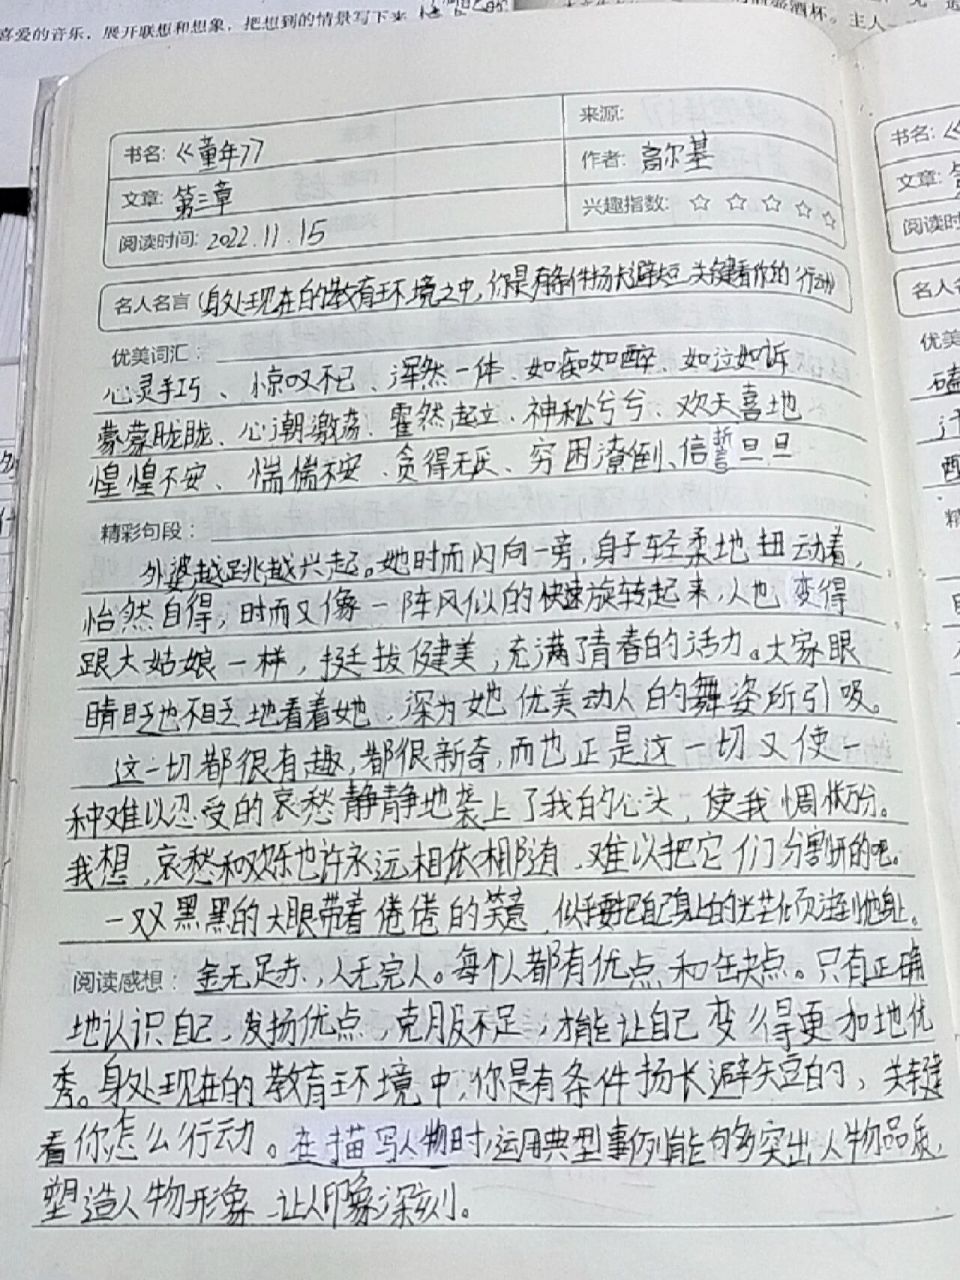 喜爱的音乐，展开联想和想象，把想到的情景写下来
酒杯。主人
书名：《童年》
来源：
文章：第三章
作者：高尔基
阅读时间：2022.11.15
兴趣指数：☆ ☆ ☆ ☆ ☆
名人名言（身处现在的教育环境之中，你是有条件扬长避短，关键看你的行动）
优美词汇：
心灵手巧、惊叹不已、浑然一体、如痴如醉、如泣如诉
蒙蒙胧胧、心潮激荡、霍然起立、神秘兮兮、欢天喜地
惶惶不安、惴惴不安、贪得无厌、穷困潦倒、信誓旦旦
精彩句段：
外婆越跳越兴起。她时而闪向一旁，身子轻柔地扭动着，
怡然自得，时而又像一阵风似的快速旋转起来，人也变得
跟大姑娘一样，挺拔健美，充满了青春的活力。大家眼
睛眨也不眨地看着她，深为她优美动人的舞姿所引吸。
这一切都很有趣，都很新奇，而也正是这一切又使一
种难以忍受的哀愁静静地袭上了我的心头，使我惆怅万分。
我想，哀愁和欢乐也许永远相依相随，难以把它们分割开的吧。
一双黑黑的大眼带着倦倦的笑意，似乎要把自己身上的光芒倾注到他身上。
阅读感想：金无足赤，人无完人。每个人都有优点和缺点。只有正确
地认识自己，发扬优点，克服不足，才能让自己变得更加地优
秀。身处现在的教育环境中，你是有条件扬长避短的，关键
看你怎么行动。在描写人物时，运用典型事例能够多突出人物品质，
塑造人物形象，让人印象深刻。
书名：
文章：
阅读时
名人名
优美